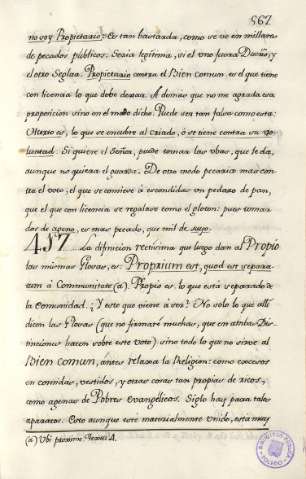 567
no soy Propietario: Es tan bastarda, como se ve en millares
de pecados públicos. Seria legitima, si el uno fuera Dueño, y
el otro Seglar. Propietario contra el Bien comun es el que tiene
con licencia lo que debe dexar. A demas que no me agrada esa
proposicion sino en el modo dicho. Puede ser tan falsa como esta:
Uterno es, lo que se encubre al criado, ó se tiene contra su vo-
luntad. Si quiere el Señor, puede tomar las uvas, que le da,
aunque no quiera el guarda. De otro modo pecaria mas con-
tra el voto, el que se comiere á escondidas un pedazo de pan,
que el que con licencia se regalase como el gloton: pues tomar
dos de ageno, es mas pecado, que mil de suyo.
457 La difinicion rectisima que luego dan al Propio
las mismas Glosas, es: Proprium est, quod est separa-
tum á Communitate (a). Propio es lo que está separado de
la Comunidad. ¿Y esto que viene á ser? No solo lo que alli
dicen las Glosas (que no firmaré muchas, que en ambas Dis-
tinciones hacen sobre este voto) sino todo lo que no sirve al
Bien comun, ántes relaxa la Religion: como excesos
en comidas, vestidos, y otras cosas tan propias de ricos,
como agenas de Pobres Evangélicos. Siglo hay para tales
aparatos. Esto aunque esté materialmente unido, está muy
(a) Ubi proxime